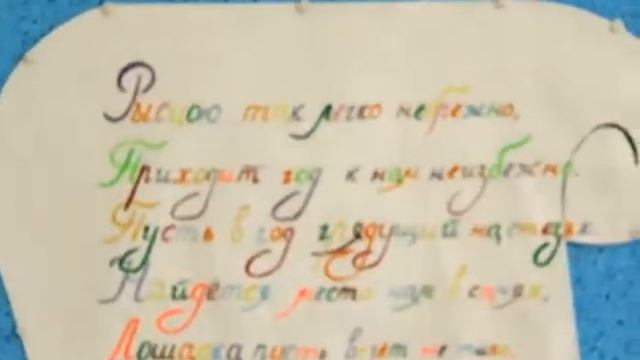 Рысцою так легко небрежно,
Приходит год к нам неизбежно.
Пусть в год грядущий на стезях
Найдется место нам в санях.
Лошадка пусть везет не тихо,